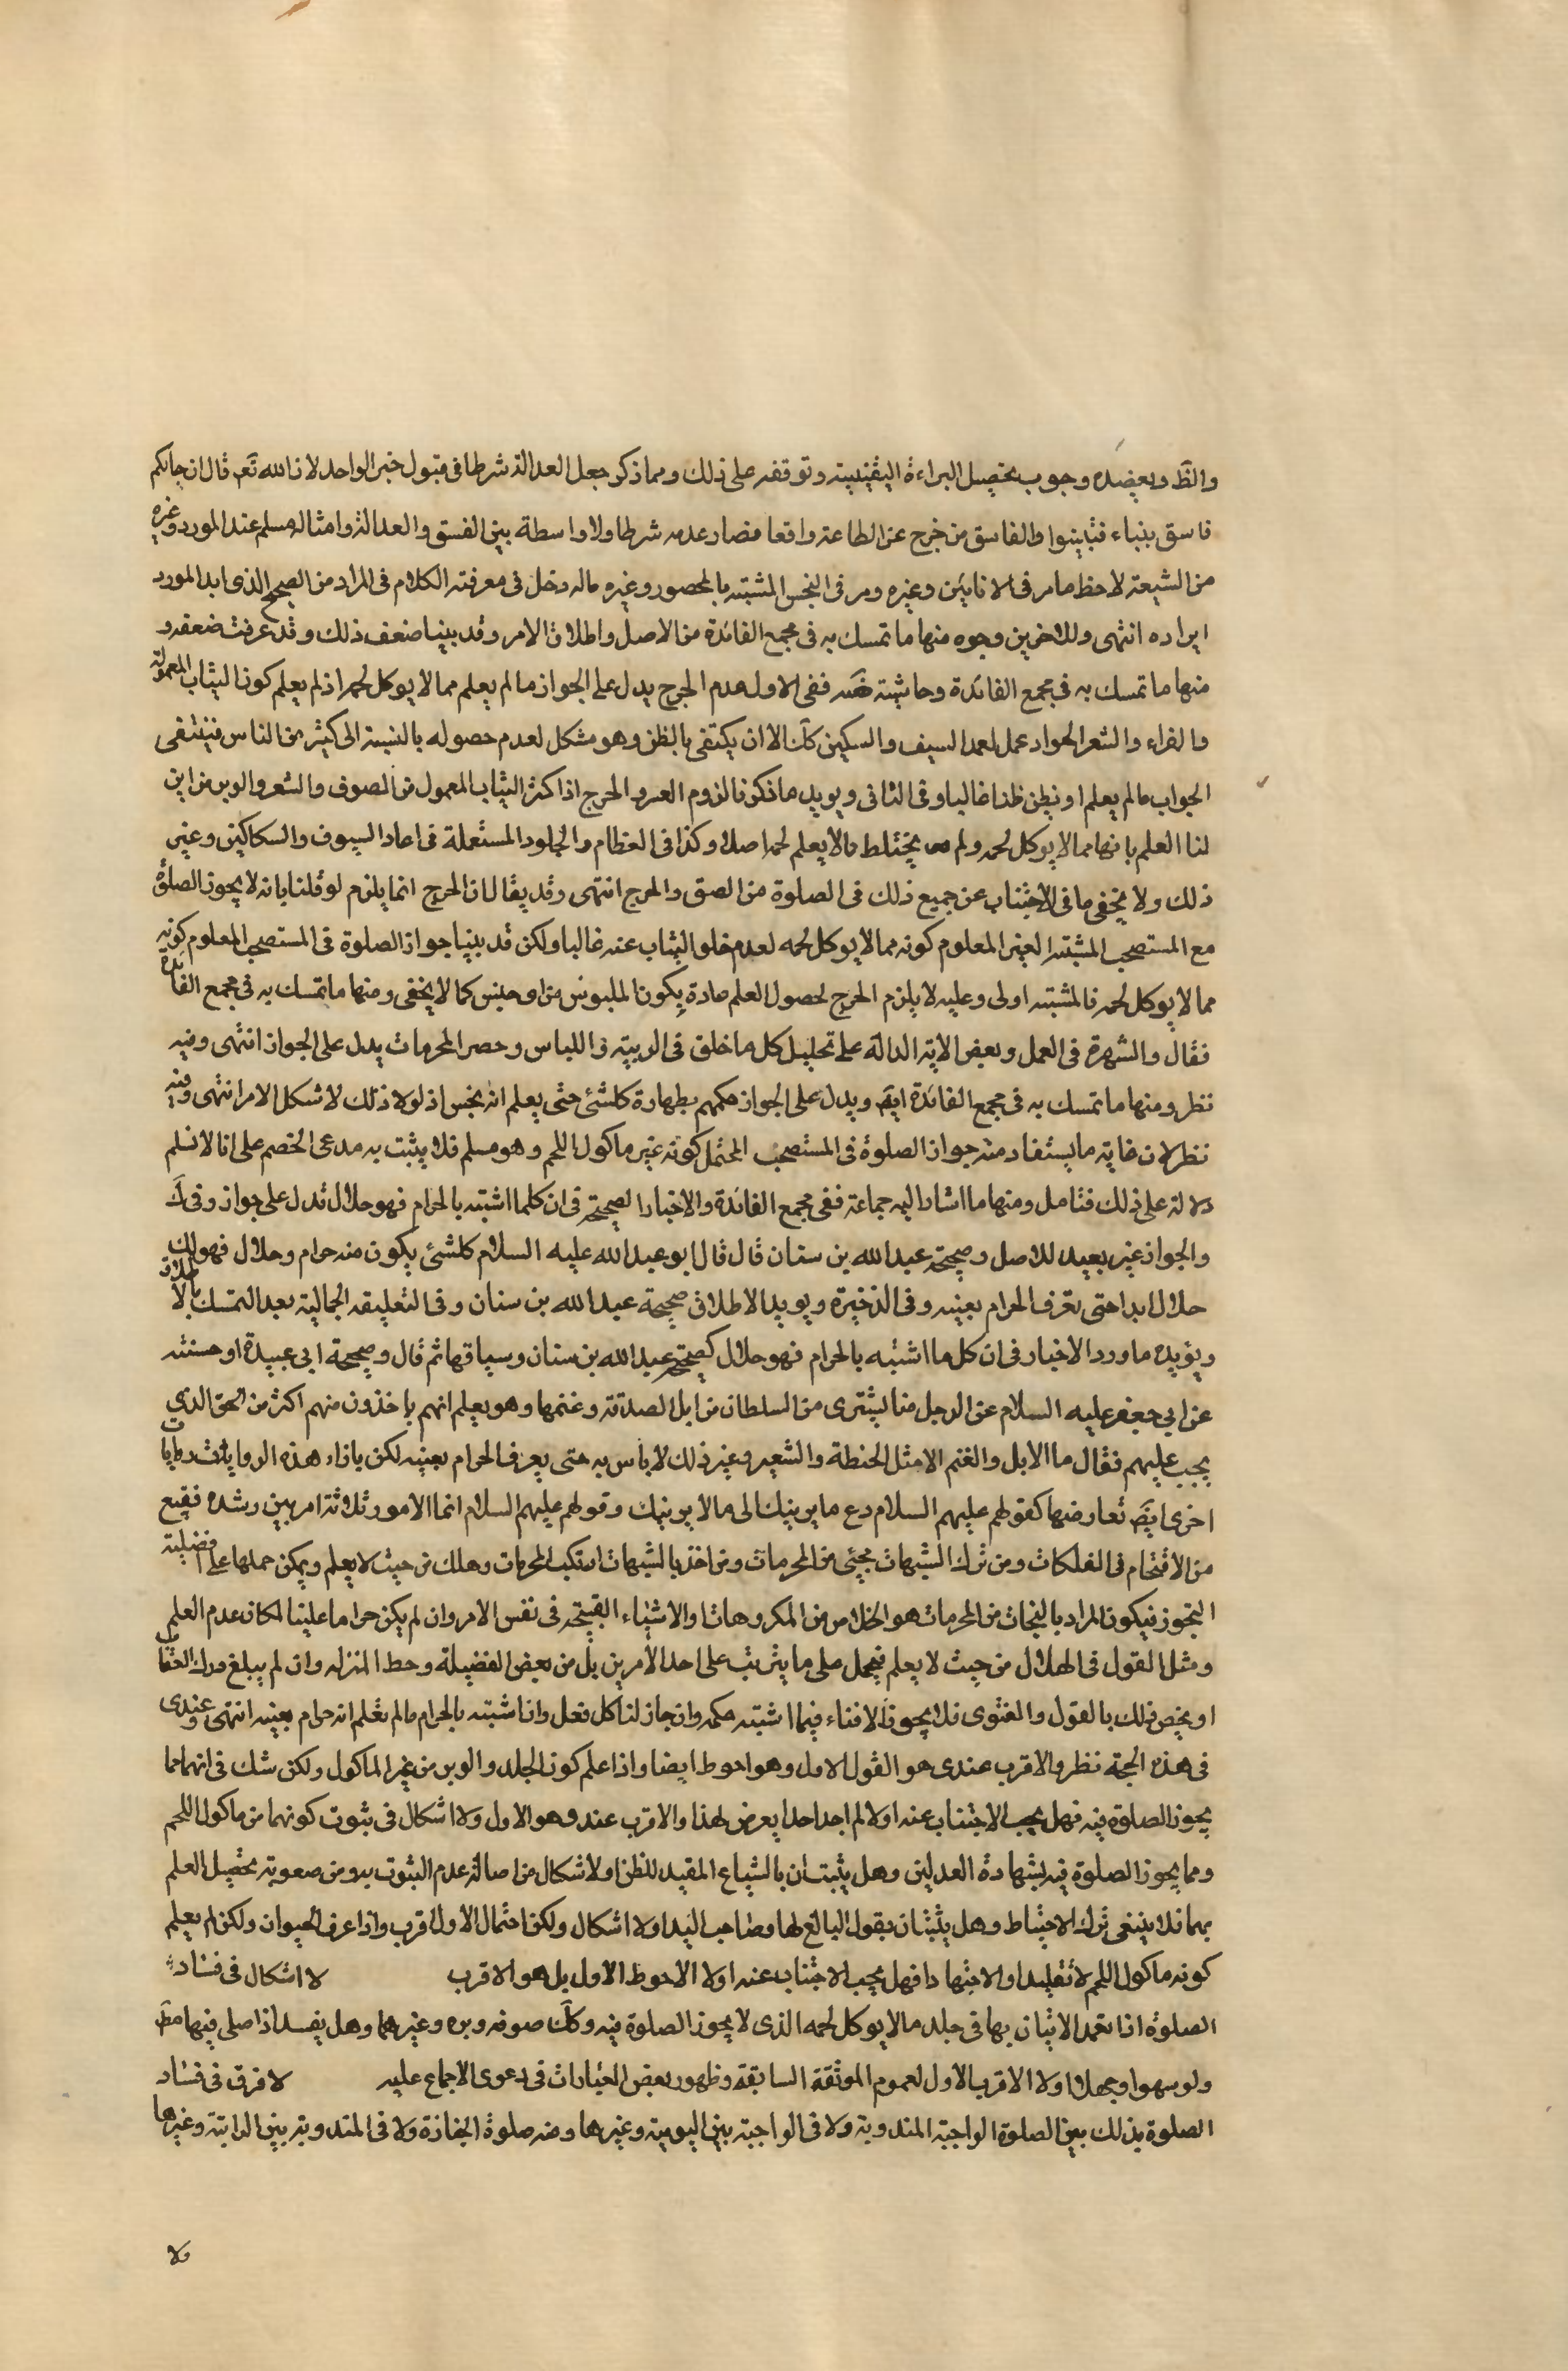 والظ ويعضده وجوب تحصيل البراءة اليقينية وتوقفه على ذلك ومما ذكر جعل العدالة شرطا في قبول خبر الواحد لان الله تع قال ان جاءكم
فاسق بنباء فتبينوا والفاسق من خرج عن الطاعة واقعا فصار عدمه شرطا ولا واسطة بين الفسق والعدالة وامثاله مسلم عند المورد وغيره
من الشيعة لاحظ ما مر في الانائين وغيره ومر في النجس المشتبه بالمحصور وغيره ماله دخل في معرفته الكلام في المراد من الصحيح الذي ابدا المورد
ايراده انتهى وللاخرين وجوه منها ما تمسك به في مجمع الفائدة من الاصل واطلاق الامر وقد بينا ضعف ذلك وقد عرفت ضعفه و
منها ما تمسك به في مجمع الفائدة وحاشيته ففي الاول عدم الحرج يدل على الجواز ما لم يعلم مما لا يوكل لحمه اذ لم يعلم كون الثياب المعمولة
والفراء والشعر الحواد عمل لعمد السيف والسكين كك الا ان يكتفى بالظن وهو مشكل لعدم حصوله بالنسبة الى كثير من الناس فينتفى
الجواب ما لم يعلم او يظن ظنا غالبا وفي الثاني ويويد ما ذكرنا لزوم العسر والحرج اذ اكثر الثياب المعمول من الصوف والشعر والوبر من اين
لنا العلم بانها مما لا يوكل لحمه ولم يختلط مالا يعلم لحمه اصلا وكذا في العظام والجلود المستعملة في اغماد السيوف والسكاكين وغير
ذلك ولا يخفى ما في الاجتناب عن جميع ذلك في الصلوة من الضيق والحرج انتهى وقد يقال ان الحرج انما يلزم لو قلنا بانه لا يجوز الصلوة
مع المستصحب المشتبه الغير المعلوم كونه مما لا يوكل لحمه لعدم خلو الثياب عنه غالبا ولكن قد بينا جواز الصلوة في المستصحب المعلوم كونه
مما لا يوكل لحمه فالمشتبه اولى وعليه لا يلزم الحرج لحصول العلم عادة بكون الملبوس من اي جنس كما لا يخفى ومنها ما تمسك به في مجمع الفائدة
فقال والشهرة في العمل وبعض الاية الدالة على تحليل كل ما خلق في الزينة واللباس وحصر المحرمات يدل على الجواز انتهى وفيه
نظر ومنها ما تمسك به في مجمع الفائدة ايض ويدل على الجواز حكمهم بطهارة كلشئ حتى يعلم انه نجس اذ لولا ذلك لاشكل الامر انتهى وفيه
نظر لان غاية ما يستفاد منه جواز الصلوة في المستصحب المحتمل كونه غير ماكول اللحم وهو مسلم فلا يثبت به مدعى الخصم على انا لا نسلم
دلالة على ذلك فتامل ومنها ما اشار اليه جماعة ففي مجمع الفائدة والاخبار الصحيحة في ان كلما اشتبه بالحرام فهو حلال تدل على جواز وفي ك
والجواز غير بعيد للاصل وصحيحة عبد الله بن سنان قال قال ابو عبد الله عليه السلام كلشئ يكون منه حرام وحلال فهو لك
حلال ابدا حتى تعرف الحرام بعينه وفي الذخيرة ويويد الاطلاق صحيحة عبد الله بن سنان وفي التعليقة الجمالية بعد التمسك بالاطلاق
ويؤيده ما ورد الاخبار في ان كل ما اشتبه بالحرام فهو حلال كصحيحة عبد الله بن سنان وسياقها ثم قال وصحيحة ابي عبيدة او حسنته
عن ابي جعفر عليه السلام عن الرجل منا يشتري من السلطان من ابل الصدقة وغنمها وهو يعلم انهم ياخذون منهم اكثر من الحق الذي
يجب عليهم فقال ما الابل والغنم الا مثل الحنطة والشعير وغير ذلك لا بأس به حتى يعرف الحرام بعينه لكن بازاء هذه الروايات روايات
اخرى ايض تعارضها كقولهم عليهم السلام دع ما يريبك الى ما لا يريبك وقولهم عليهم السلام انما الامور ثلاثة امر بين رشده فيتبع
من الاقتحام في الهلكات ومن ترك الشبهات نجى من المحرمات ومن اخذ بالشبهات ارتكب المحرمات وهلك من حيث لا يعلم ويمكن حملها على افضلية
التجوز فيكون المراد بالنجات من المحرمات هو الخلاص من المكروهات والاشياء القبيحة في نفس الامر وان لم يكن حراما علينا لمكان عدم العلم
ومثل القول في الهلاك من حيث لا يعلم فيحمل على ما يترتب على احد الامرين بل من بعض الفضيلة وحط المنزلة وان لم يبلغ درك العقاب
او يخص ذلك بالقول والفتوى فلا يجوز الافتاء فيما اشتبه حكمه وان جاز لنا كل فعل وان اشتبه بالحرام ما لم نعلم انه حرام بعينه انتهى وعندي
في هذه الحجة نظر والاقرب عندي هو القول الاول وهو احوط ايضا واذا علم كون الجلد والوبر من غير الماكول ولكن شك في انهما مما
يجوز الصلوة فيه فهل يجب الاجتناب عنه اولا لم اجد احدا يعرض لهذا والاقرب عندي هو الاول ولا اشكال في ثبوت كونهما من ماكول اللحم
ومما يجوز الصلوة فيه بشهادة العدلين وهل يثبتان بالشياع المفيد للظن اولا اشكال من اصالة عدم الثبوت به ومن صعوبة تحصيل العلم
بهما فلا ينبغي ترك الاحتياط وهل يثبتان بقول البائع لها وصاحب اليد اولا اشكال ولكن احتمال الاول اقرب واذا عرف الحيوان ولكن لم يعلم
كونه ماكول اللحم لا تقليدا ولا اجتهادا فهل يجب الاجتناب عنه اولا الاحوط الاول بل هو الاقرب لا اشكال في فساد
الصلوة اذا تعمد الاتيان بها في جلد ما لا يوكل لحمه الذي لا يجوز الصلوة فيه وكك صوفه وبره وغيرهما وهل يفسد اذا صلى فيها مط
ولو سهوا وجهلا اولا الاقرب الاول لعموم الموثقة السابقة وظهور بعض العبارات في دعوى الاجماع عليه لا فرق في فساد
الصلوة بذلك بين الصلوة الواجبة المندوبة ولا في الواجبة بين اليومية وغيرها ومنه صلوة الجنازة ولا في المندوبة بين الراتبة وغيرها
ولا